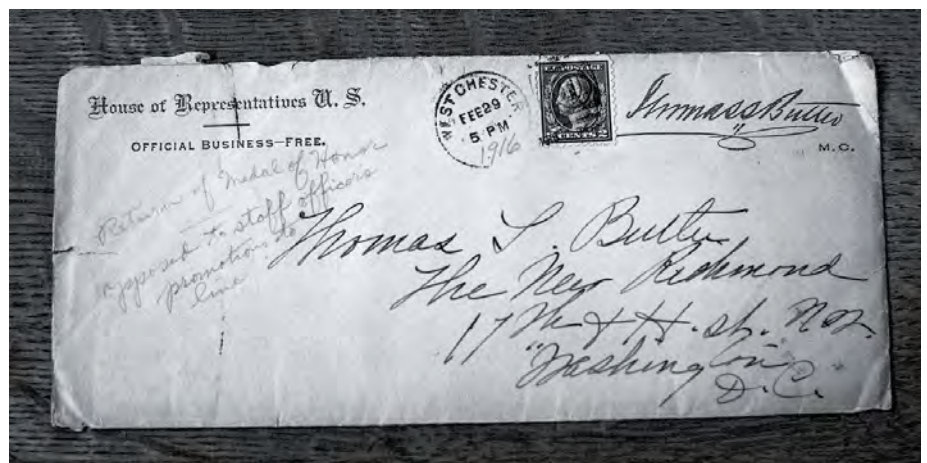 House of Representatives U. S.
OFFICIAL BUSINESS—FREE.
WEST CHESTER
FEB 29
5 PM
1916
U.S. POSTAGE
2 CENTS 2
Thomas S Butler
M. C.
Return of Medal of Honor
opposed to staff officers
promotions to
line
Thomas S. Butler
The New Richmond
17th & H. st. N.W.
"Washington"
D.C.